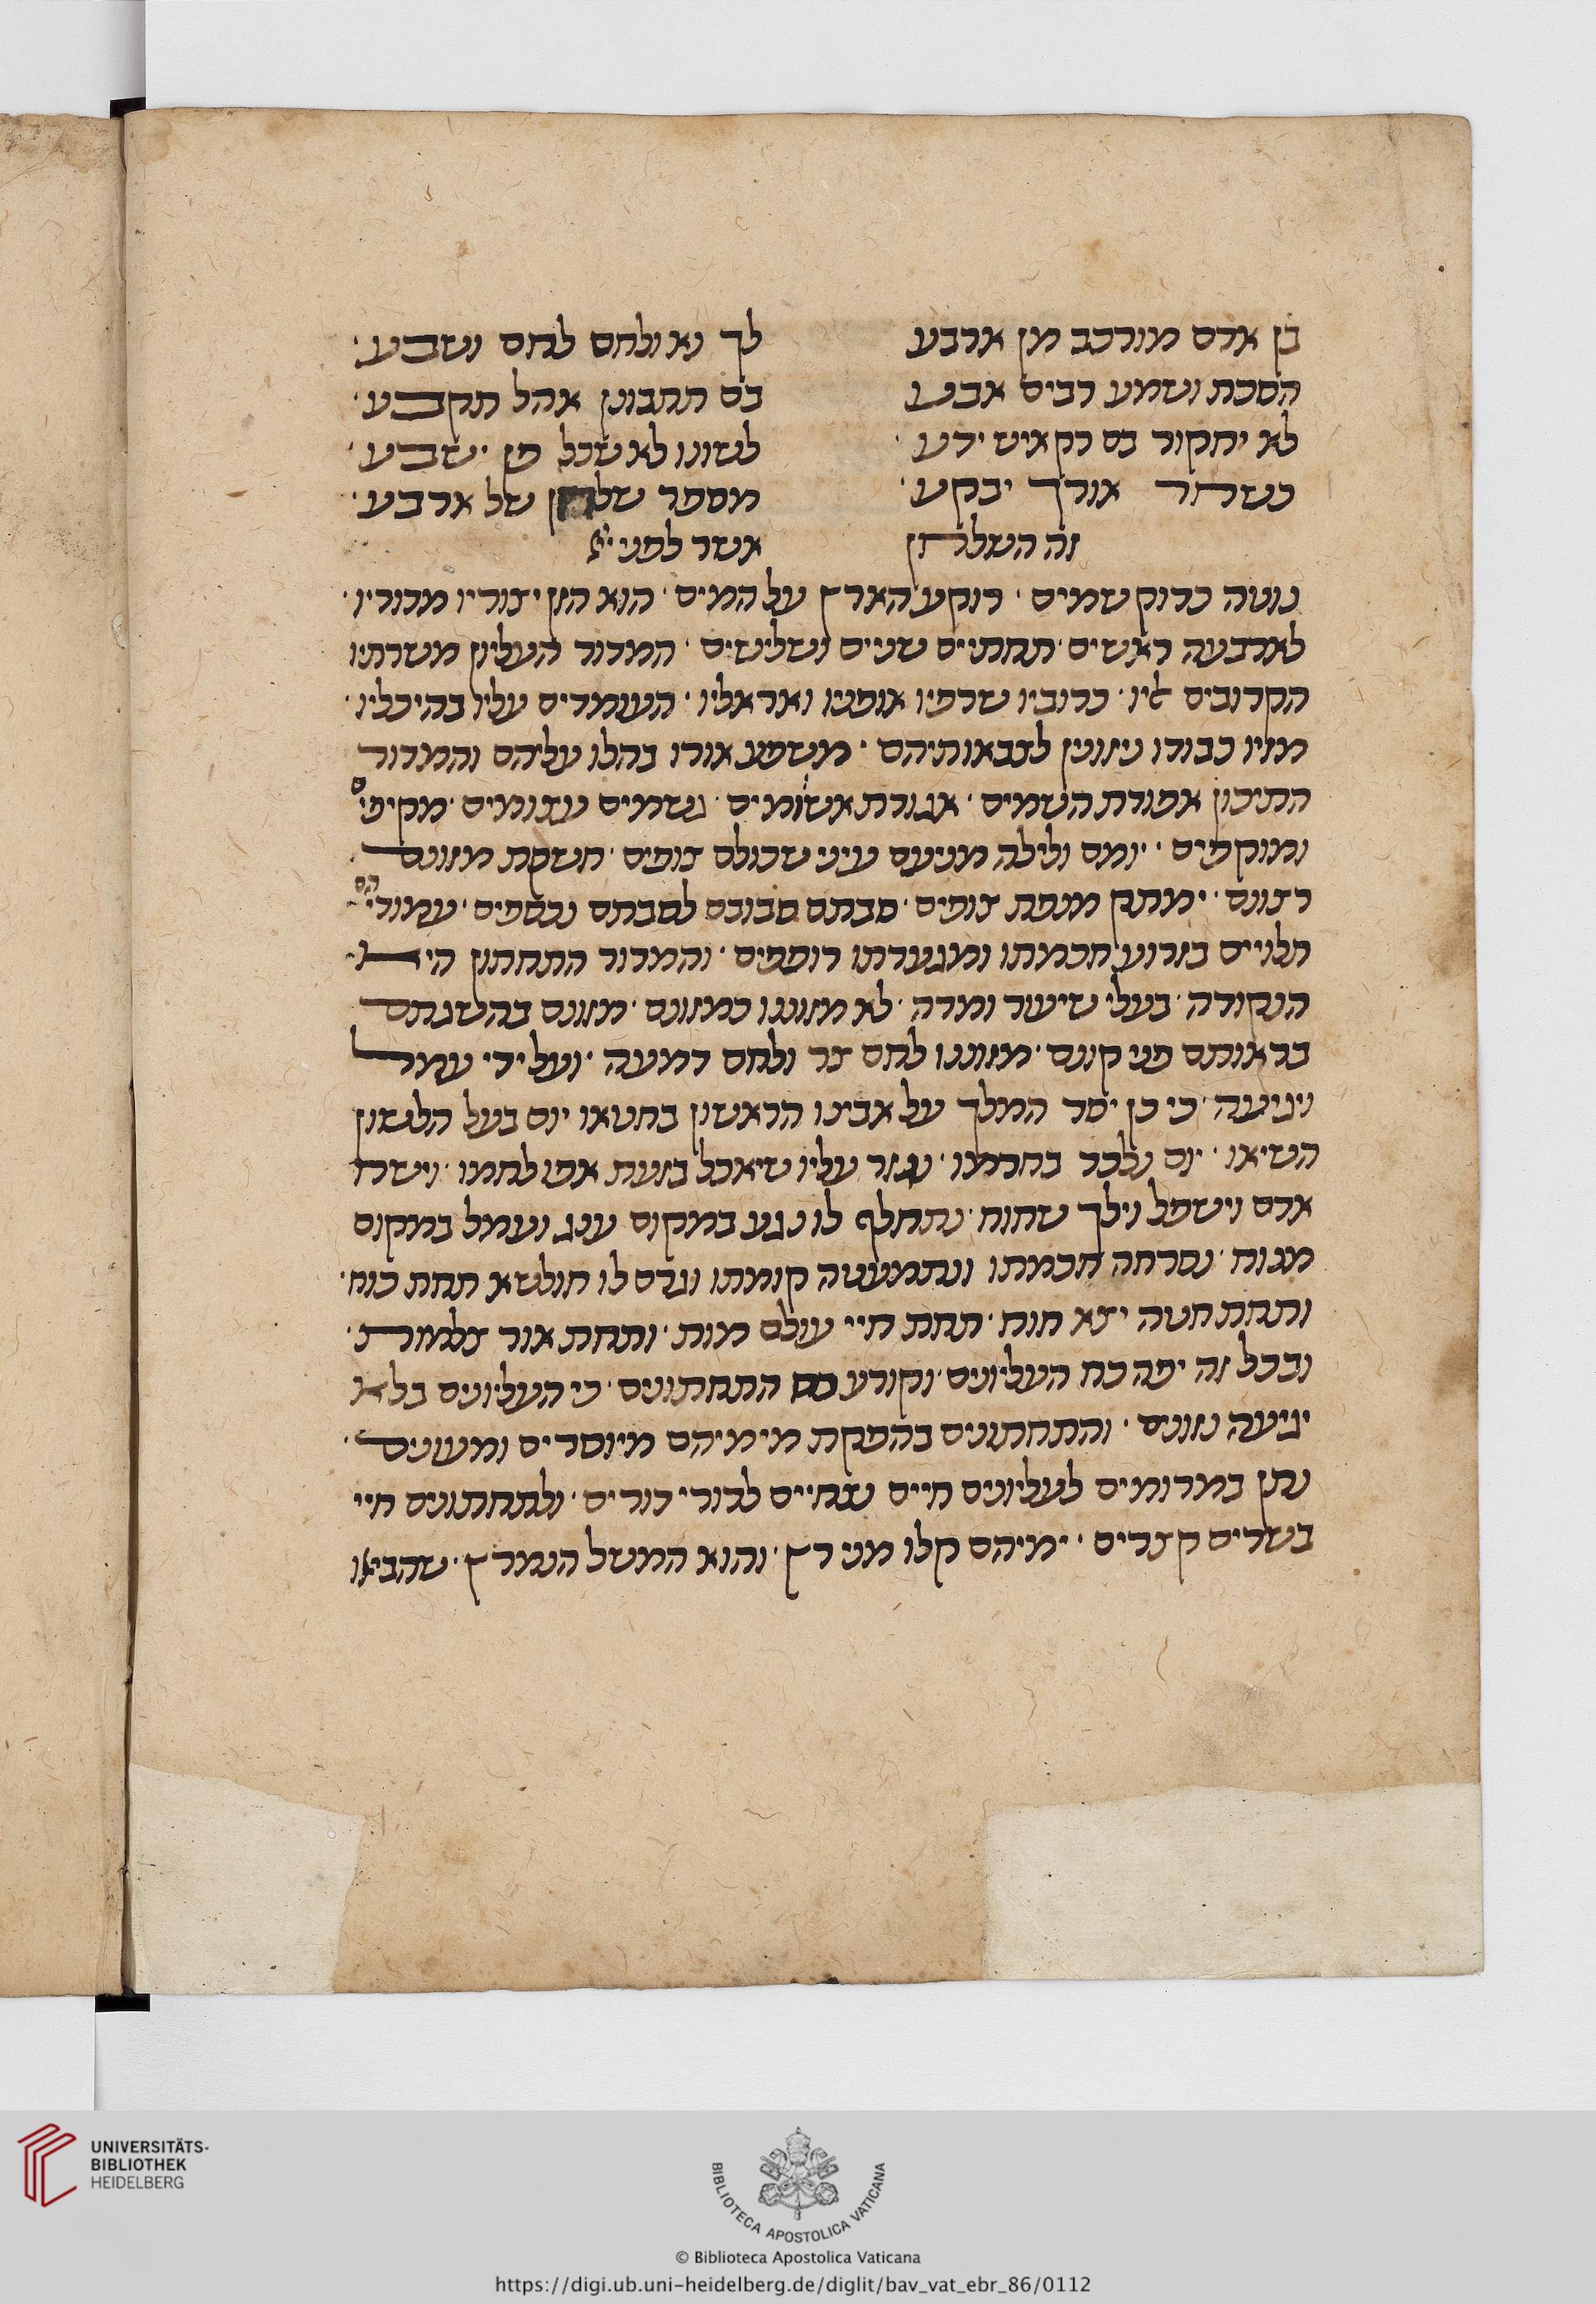 בן אדם מורכב מן ארבע לך נא ולחם לחם ושבע·
הסכת ושמע רבים אבע בם תתבונן אהל תקבע·
לא יחקור בם רק איש ידע· לשונו לא שכל פן ישבע·
כשחר אורך יבקע· מספר שלחן של ארבע·
זה השלחן אשר לפני
נוטה כדוק שמים· רוקע הארץ על המים· הוא הזן יצוריו מדוריו·
לארבעה ראשים· תחתיים שניים ושלישים· המדור העליון משרתיו
הקרובים אליו· כרוביו שרפיו אופניו ואראליו· העומדים עליו בהיכליו·
מזיו כבודו ניזונין לצבאותיהם· משפע אורו בהלו עליהם והמדור
התיכון אפודת השמים· אגודת אשומים· גשמים עצומים· מקיפים
ומוקפים· יומם ולילה מניעם עיני שכולם צופים· חשקת מזונם
רצונם· ימתק מנפת צופים· סבתם סבובם לסבתם נכספים· עמודיהם
תלויים בזרוע חכמתו ומגערתו רופפים· והמדור התחתון היא
הנקודה· בעלי שיעור ומדה· לא מזוננו כמזונם· מזונם בהשגתם
בראותם פני קונם· מזוננו לחם צר ולחם דמעה· ועל ידי עמל
ויגיעה· כי כן יסד המלך על אבינו הראשון בחטאו יום בעל הלשון
השיאו· יום נלכד בחרמו· נגזר עליו שיאכל בזעת אפו לחמו· וישח
אדם וישפל וילך שחוח· נתחלף לו נגע במקום ענג ועמל במקום
מנוח· נסרחה חכמתו ונתמעטה קומתו וגרם לו חולשא תחת כוח·
ותחת חטה יצא חוח· תחת חיי עולם מות· ותחת אור צלמות·
ובכל זה יפה כח העליונים· וקורע כח התחתונים· כי העליונים בלא
יגיעה נזונים· והתחתונים בהפקת מימיהם מיוסרים ומעונים·
נתן במרומים לעליונים חיים נצחיים לדורי דורים· ולתחתונים חיי
בשרים קצרים· ימיהם קלו מני רץ· והוא המשל הנמרץ· שהביאו
UNIVERSITÄTS-
BIBLIOTHEK
HEIDELBERG
BIBLIOTECA APOSTOLICA VATICANA
© Biblioteca Apostolica Vaticana
https://digi.ub.uni-heidelberg.de/diglit/bav_vat_ebr_86/0112